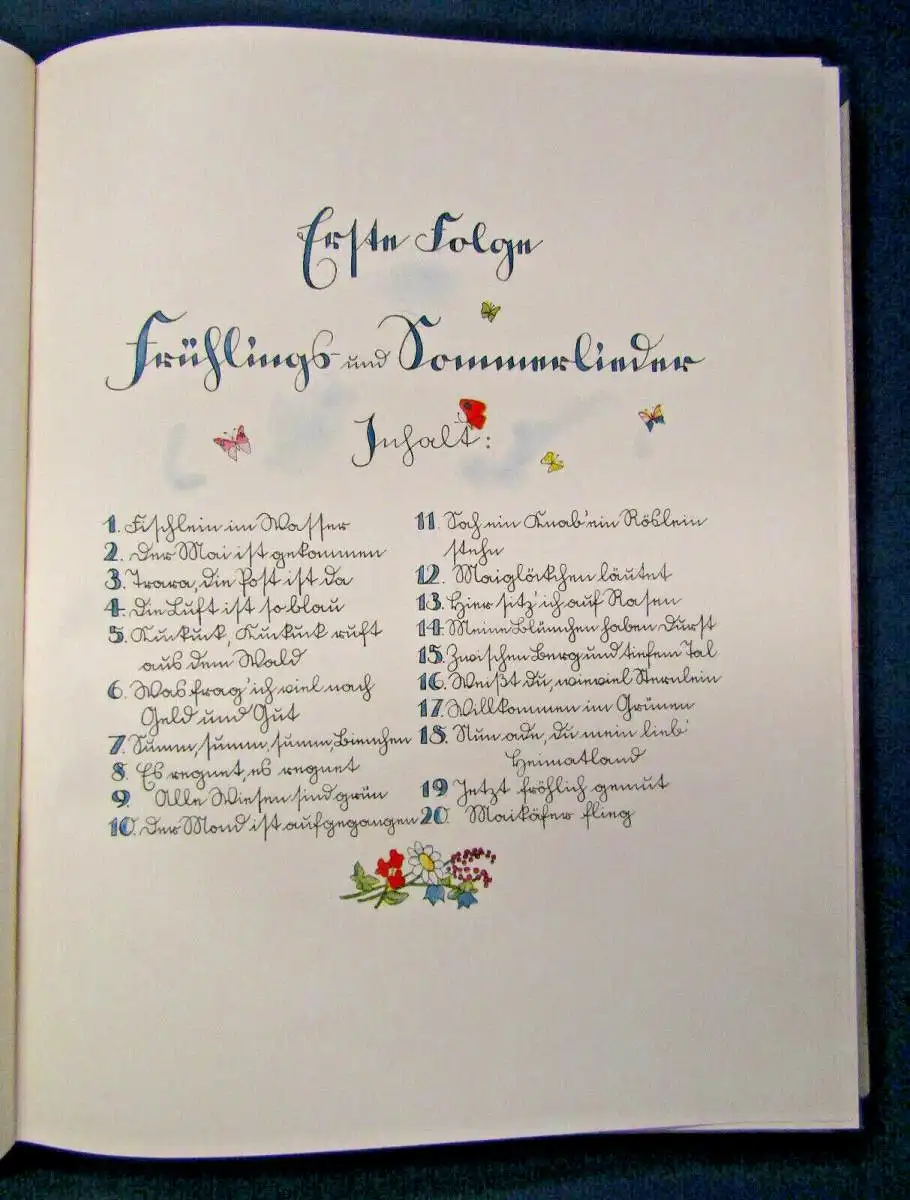 Erste Folge
Frühlings- und Sommerlieder
Inhalt:
1. Fischlein im Wasser
2. Der Mai ist gekommen
3. Trara, die Post ist da
4. Die Luft ist so blau
5. Kuckuck, Kuckuck ruft
aus dem Wald
6. Was frag' ich viel nach
Geld und Gut
7. Summ, summ, summ, Bienchen
8. Es regnet, es regnet
9. Alle Wiesen sind grün
10. Der Mond ist aufgegangen
11. Sah ein Knab' ein Röslein
stehn
12. Maiglöckchen läutet
13. Hier sitz' ich auf Rasen
14. Meine Blümchen haben Durst
15. Zwischen Berg und tiefem Tal
16. Weißt du, wieviel Sternlein
17. Willkommen im Grünen
18. Nun ade, du mein lieb'
Heimatland
19 Jetzt fröhlich gemut
20. Maikäfer flieg